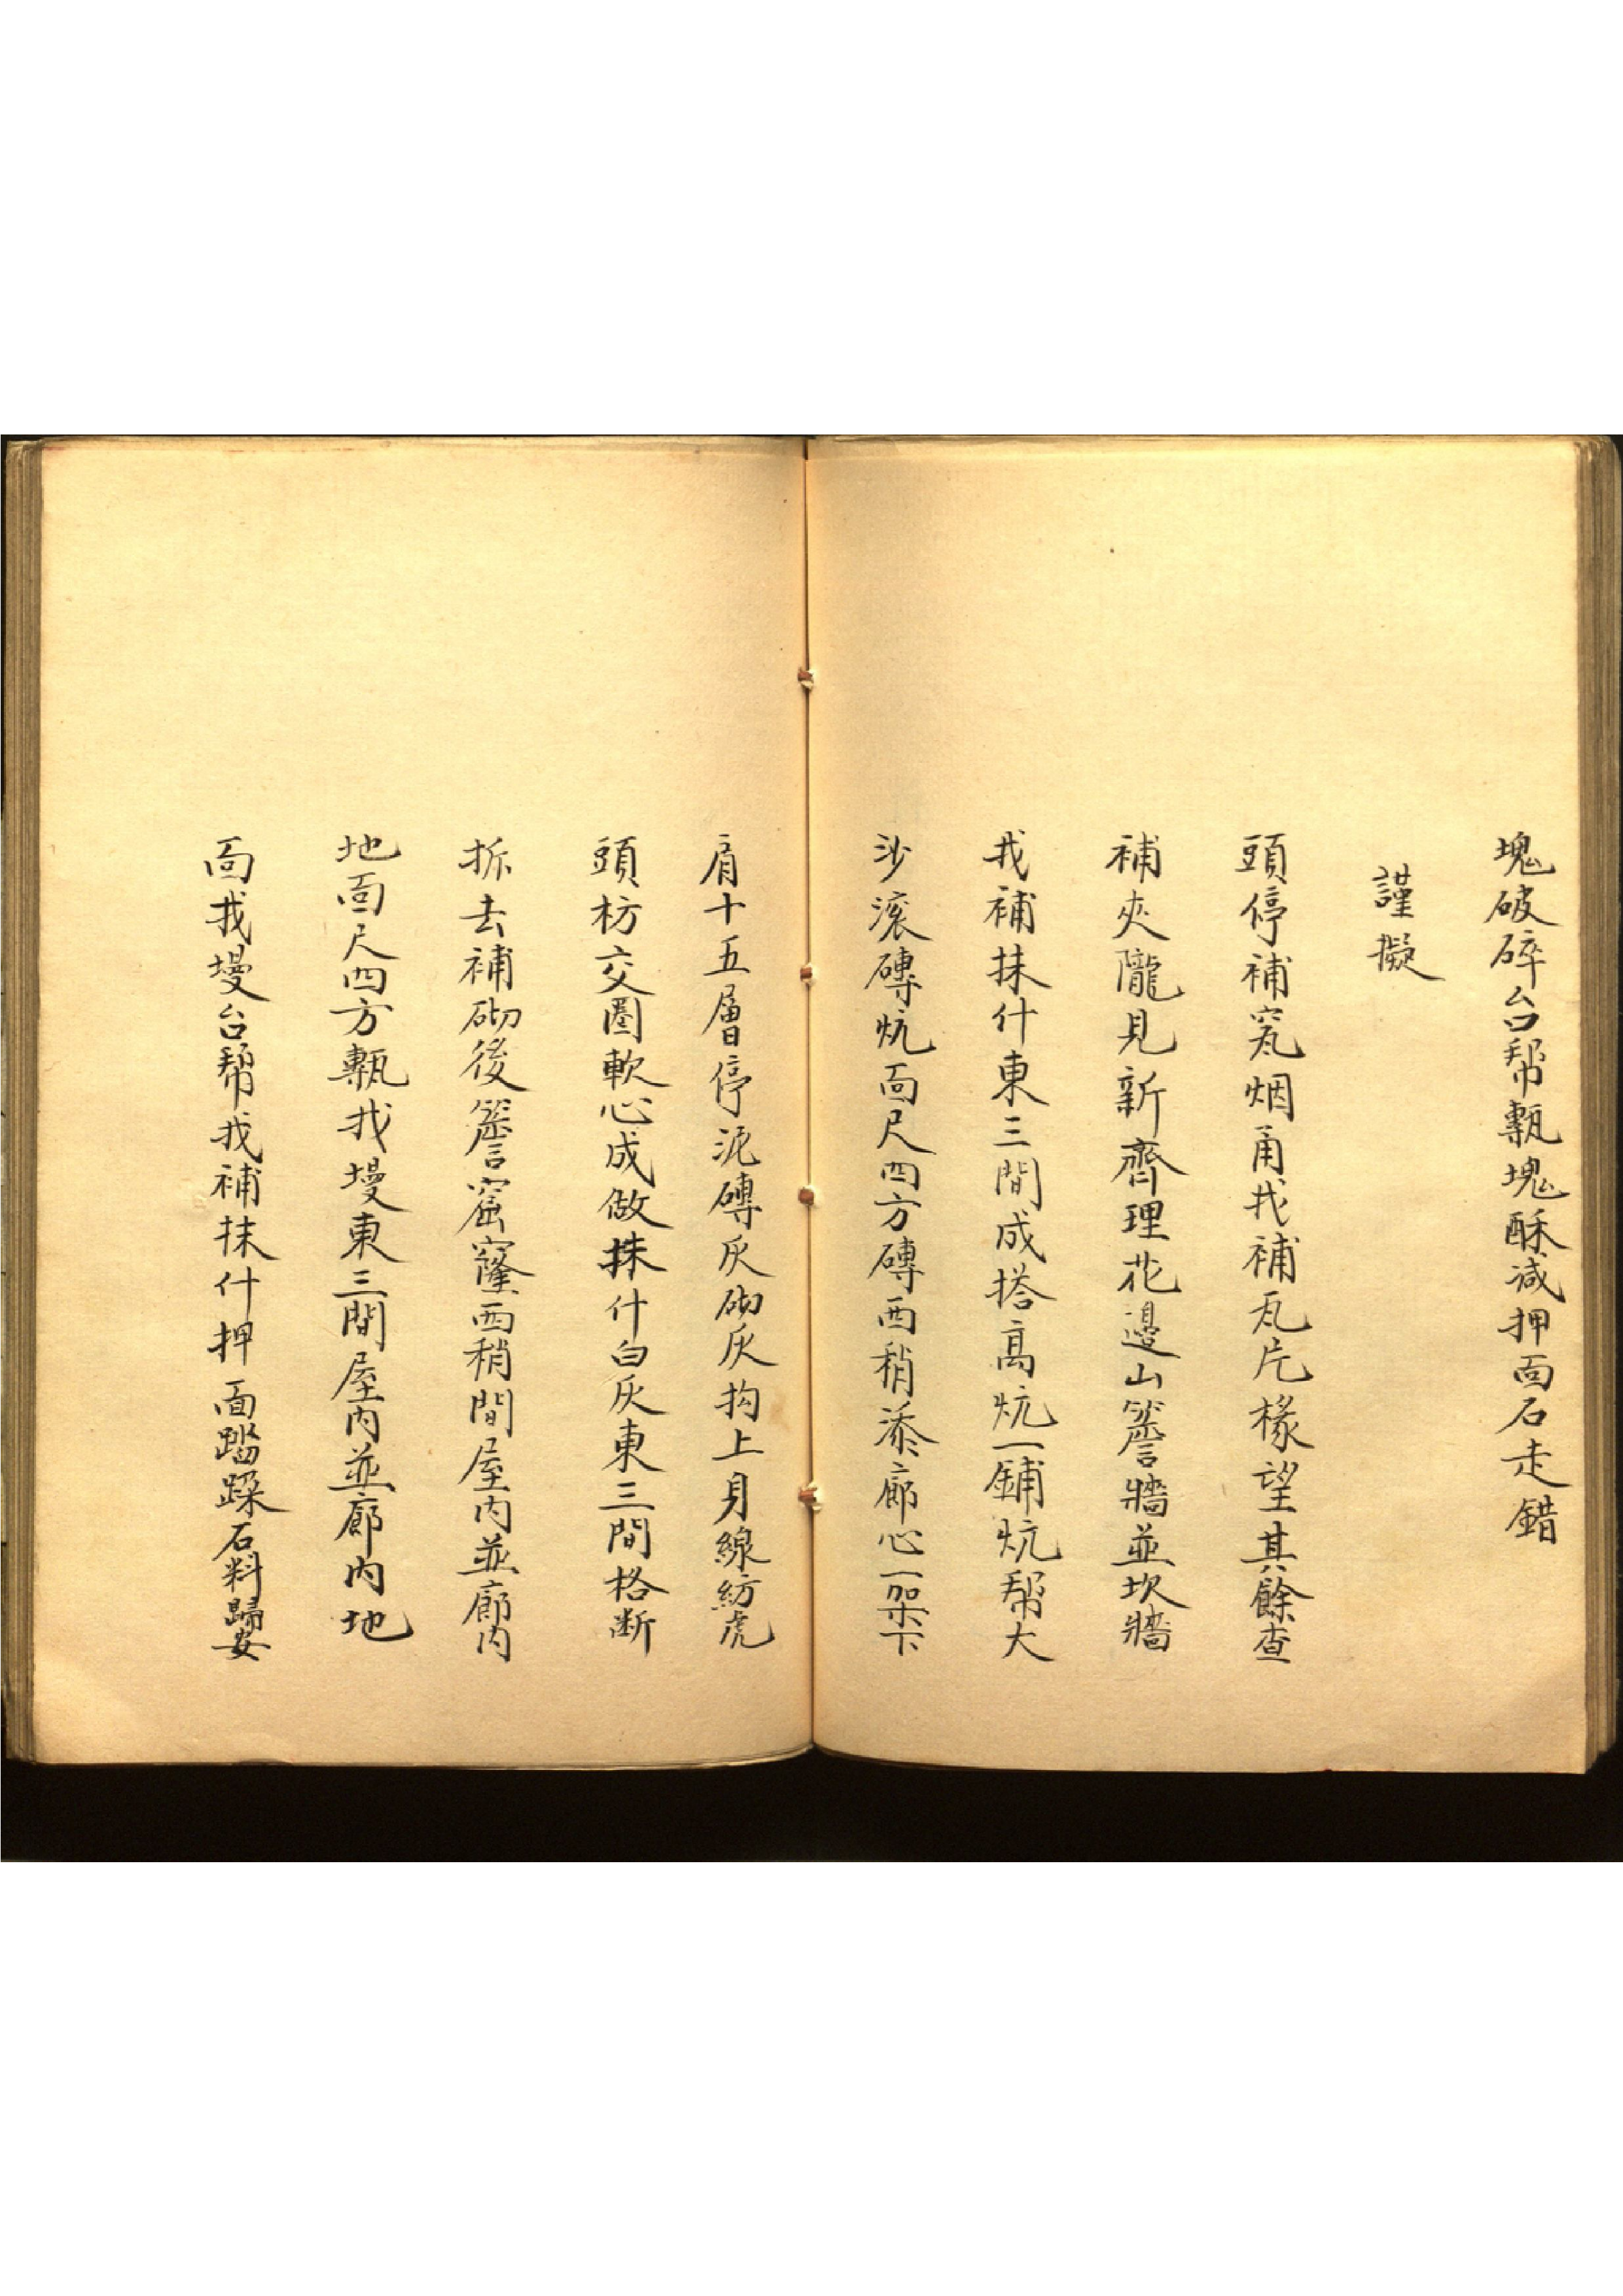 塊破碎台幫甎塊酥減押面石走錯
謹擬
頭停補窊烟甬找補瓦片椽望其餘查
補夾隴見新齊理花邊山簷牆並坎牆
找補抹什東三間成搭高炕一鋪炕幫大
沙滚磚炕面尺四方磚西稍添廊心一架下
肩十五層停泥磚灰砌灰抅上身線紡虎
頭枋交圈軟心成做抹什白灰東三間格断
拆去補砌後簷窟窿西稍間屋内並廊内
地面尺四方甎找墁東三間屋内並廊内地
面找墁台幫找補抹什押面踏跺石料歸安